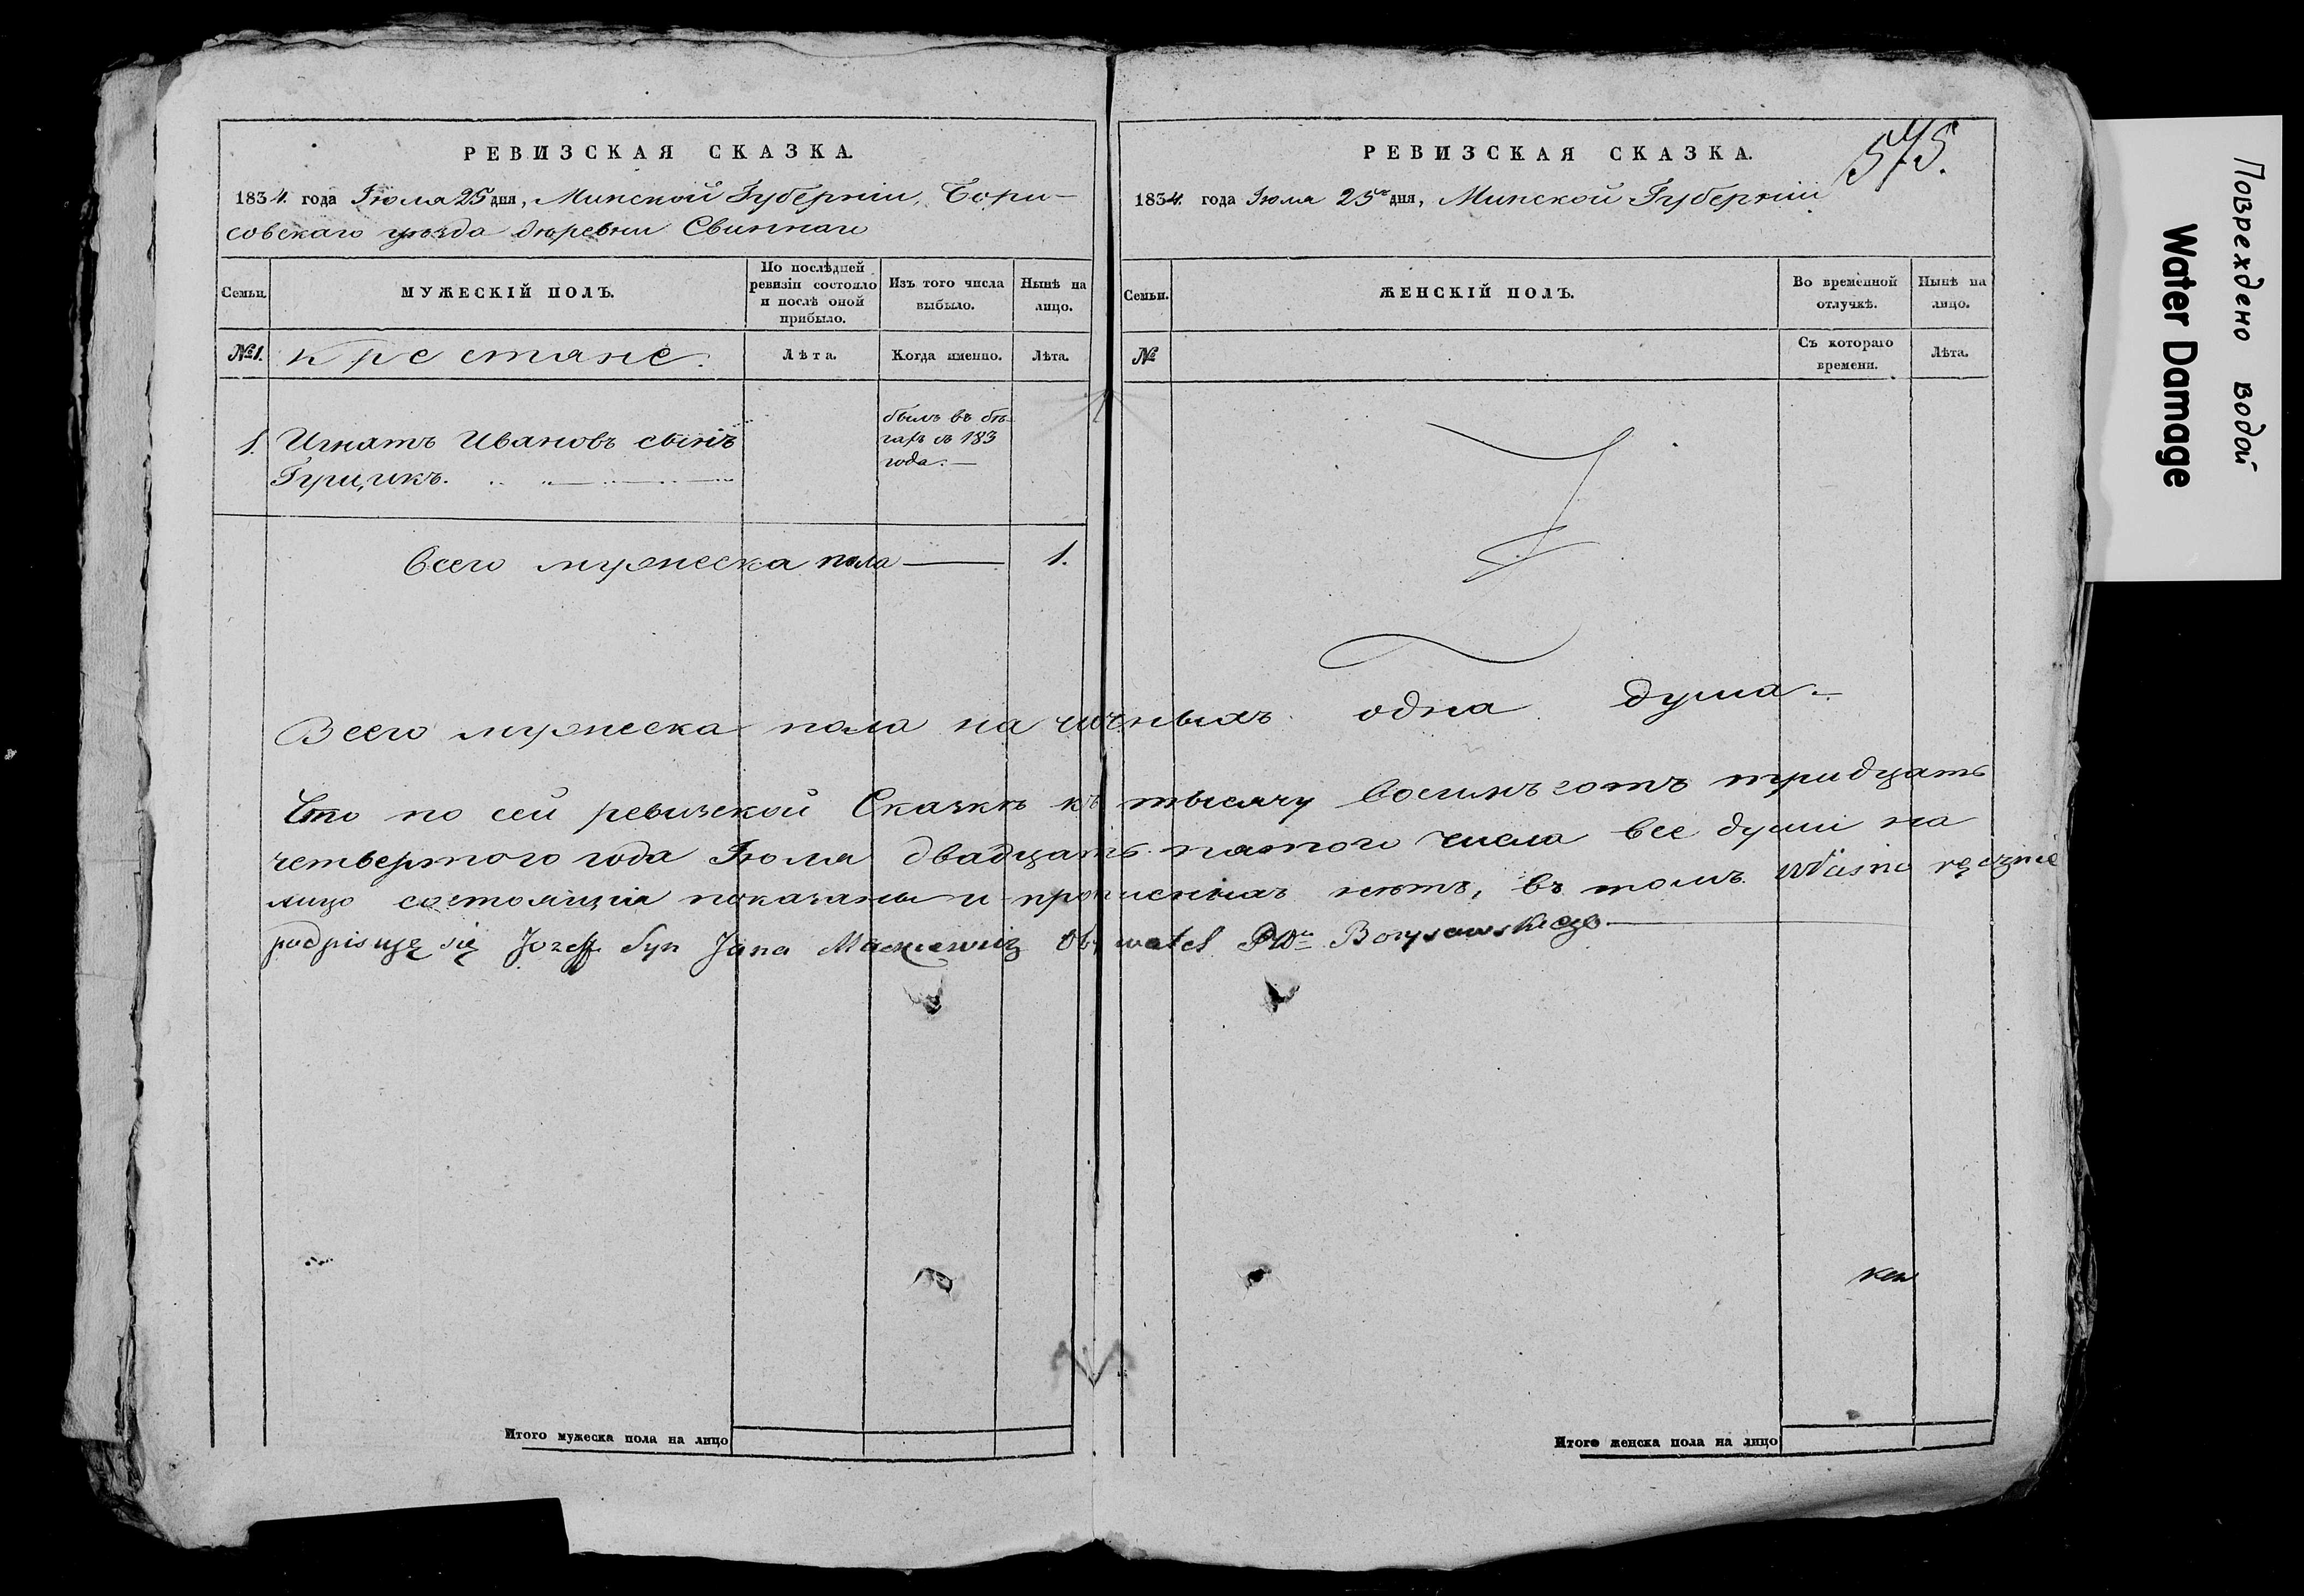 РЕВИЗСКАЯ СКАЗКА.
1834. года Іюля 25 дня, Минской Губерніи, Бори-
совскаго уѣзда деревни Свиннаго
Семьи.
МУЖЕСКІЙ ПОЛЪ.
По послѣдней ревизіи состояло и послѣ оной прибыло.
Изъ того числа выбыло.
Нынѣ на лицо.
№1.
крестяне.
Лѣта.
Когда именно.
Лѣта.
1. Игнатъ Ивановъ сынъ
Грицикъ.
былъ въ бѣ-
гахъ съ 183
года.—
Всего мужеска пола — 1.
575.
РЕВИЗСКАЯ СКАЗКА.
1834. года Іюля 25го дня, Минской Губерніи
Семьи.
ЖЕНСКІЙ ПОЛЪ.
Во временной отлучкѣ.
Нынѣ на лицо.
№
Съ котораго времени.
Лѣта.
Всего мужеска пола одна душа.—
Что по сей ревизской Сказкѣ къ тысячу восимъ сотъ тридцать
четвертого года Іюля двадцать пятого числа все души на
лицо состоящіи показаны и прописныхъ нѣтъ, въ томъ własno ręcznie
podpisuję się Jozeff Syn Jana Mackiewicz Obywatel Ptu Borysowskiego—
Итого мужеска пола на лицо
Итого женска пола на лицо
Повреждено водой
Water Damage